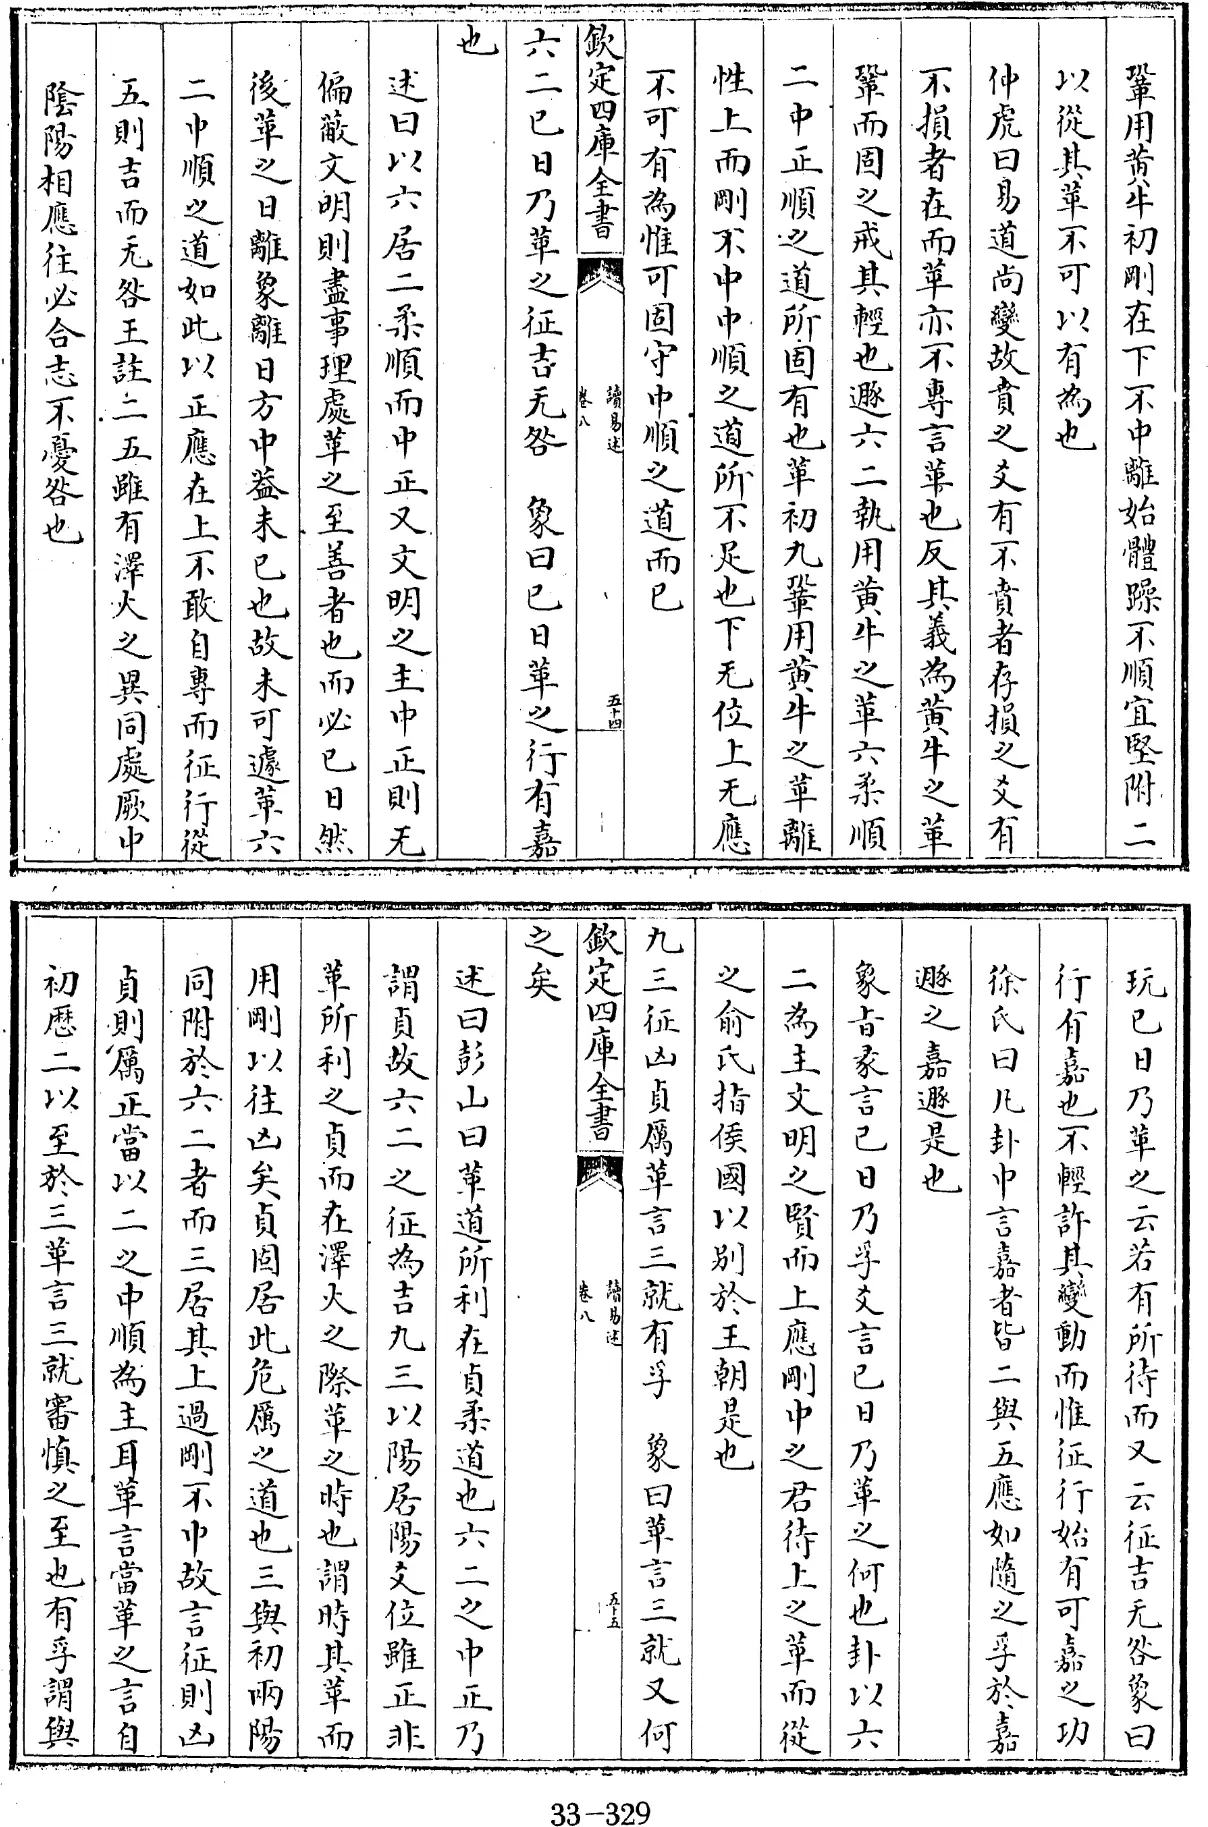 鞏用黄牛初剛在下不中離始體躁不順宜堅附二
以從其革不可以有為也
仲虎曰易道尚變故賁之爻有不賁者存損之爻有
不損者在而革亦不專言革也反其義為黄牛之革
鞏而固之戒其輕也遯六二執用黄牛之革六柔順
二中正順之道所固有也革初九鞏用黄牛之革離
性上而剛不中中順之道所不足也下无位上无應
不可有為惟可固守中順之道而已
欽定四庫全書
讀易述
卷八
五十四
六二已日乃革之征吉无咎 象曰已日革之行有嘉
也
述曰以六居二柔順而中正又文明之主中正則无
偏蔽文明則盡事理處革之至善者也而必已日然
後革之日離象離日方中益未已也故未可遽革六
二中順之道如此以正應在上不敢自專而征行從
五則吉而无咎王註二五雖有澤火之異同處厥中
陰陽相應往必合志不憂咎也
玩已日乃革之云若有所待而又云征吉无咎象曰
行有嘉也不輕許其變動而惟征行始有可嘉之功
徐氏曰凡卦中言嘉者皆二與五應如隨之孚於嘉
遯之嘉遯是也
象旨彖言已日乃孚爻言已日乃革之何也卦以六
二為主文明之賢而上應剛中之君待上之革而從
之俞氏指侯國以别於王朝是也
九三征凶貞厲革言三就有孚 象曰革言三就又何
欽定四庫全書
讀易述
卷八
五十五
之矣
述曰彭山曰革道所利在貞柔道也六二之中正乃
謂貞故六二之征為吉九三以陽居陽爻位雖正非
革所利之貞而在澤火之際革之時也謂時其革而
用剛以往凶矣貞固居此危厲之道也三與初兩陽
同附於六二者而三居其上過剛不中故言征則凶
貞則厲正當以二之中順為主耳革言當革之言自
初歷二以至於三革言三就審慎之至也有孚謂與
33-329